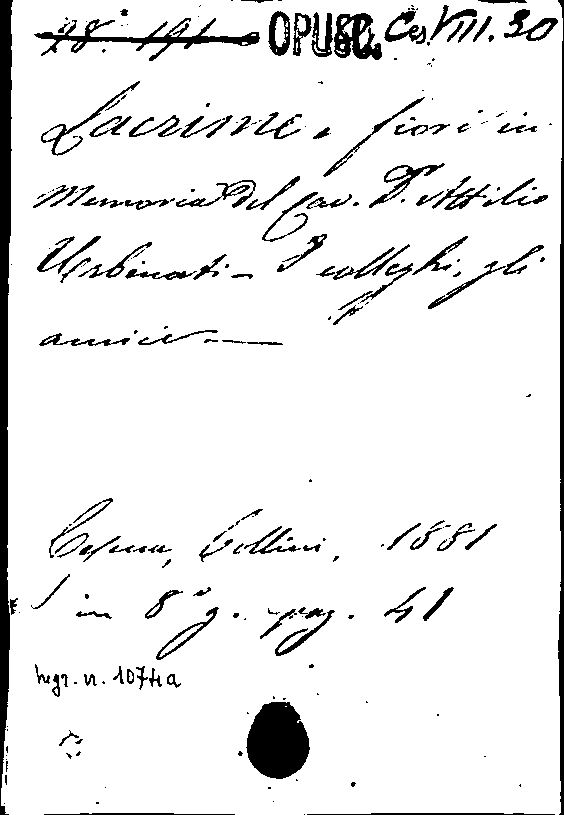 28. 191 OPUSC. Ces. VIII. 30
Lacrime e fiori in
Memoria del Cav. Dr. Attilio
Urbinati - I colleghi, gli
amici. —
Cesena, Collini, 1881
in 8° g. pag. 41
Ingr. n. 10744a